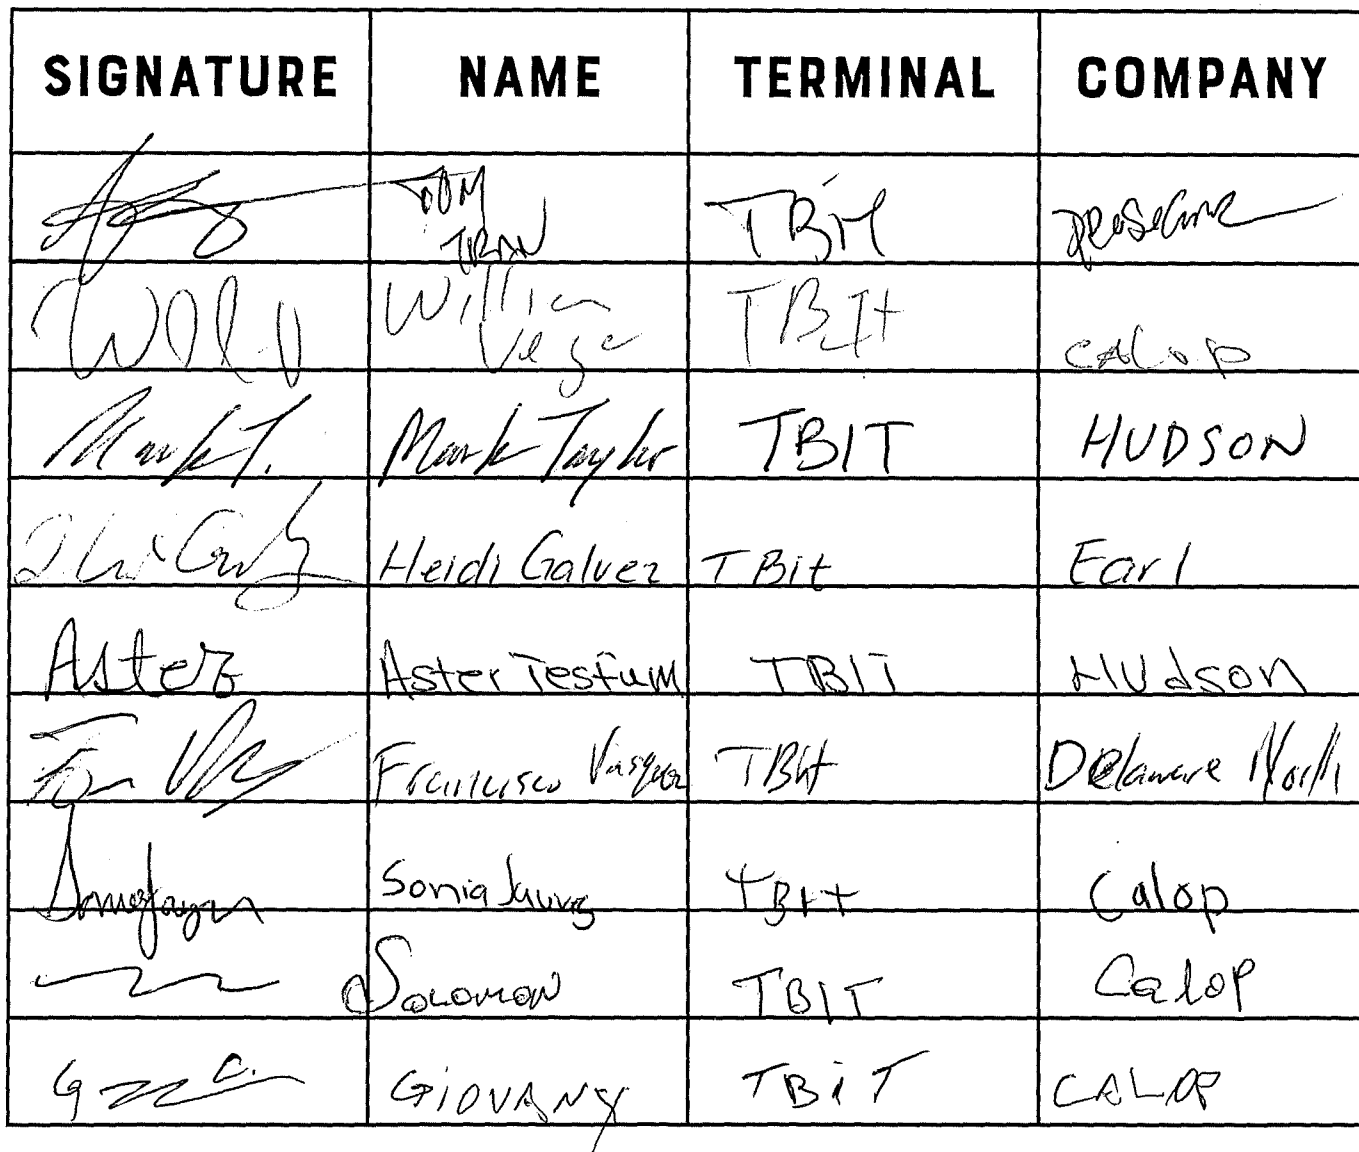 SIGNATURE NAME TERMINAL COMPANY
TOM
TRAN TBIT
William
Vega TBIt CALOP
Mark T. Mark Taylor TBIT HUDSON
Heidi Galvez TBit Earl
Aster Aster Tesfum TBIT HUdson
Francisco Vasquez TBit Delaware North
Sonia TBIt Calop
Solomon TBIT Calop
GIOVANY TBiT CALOP